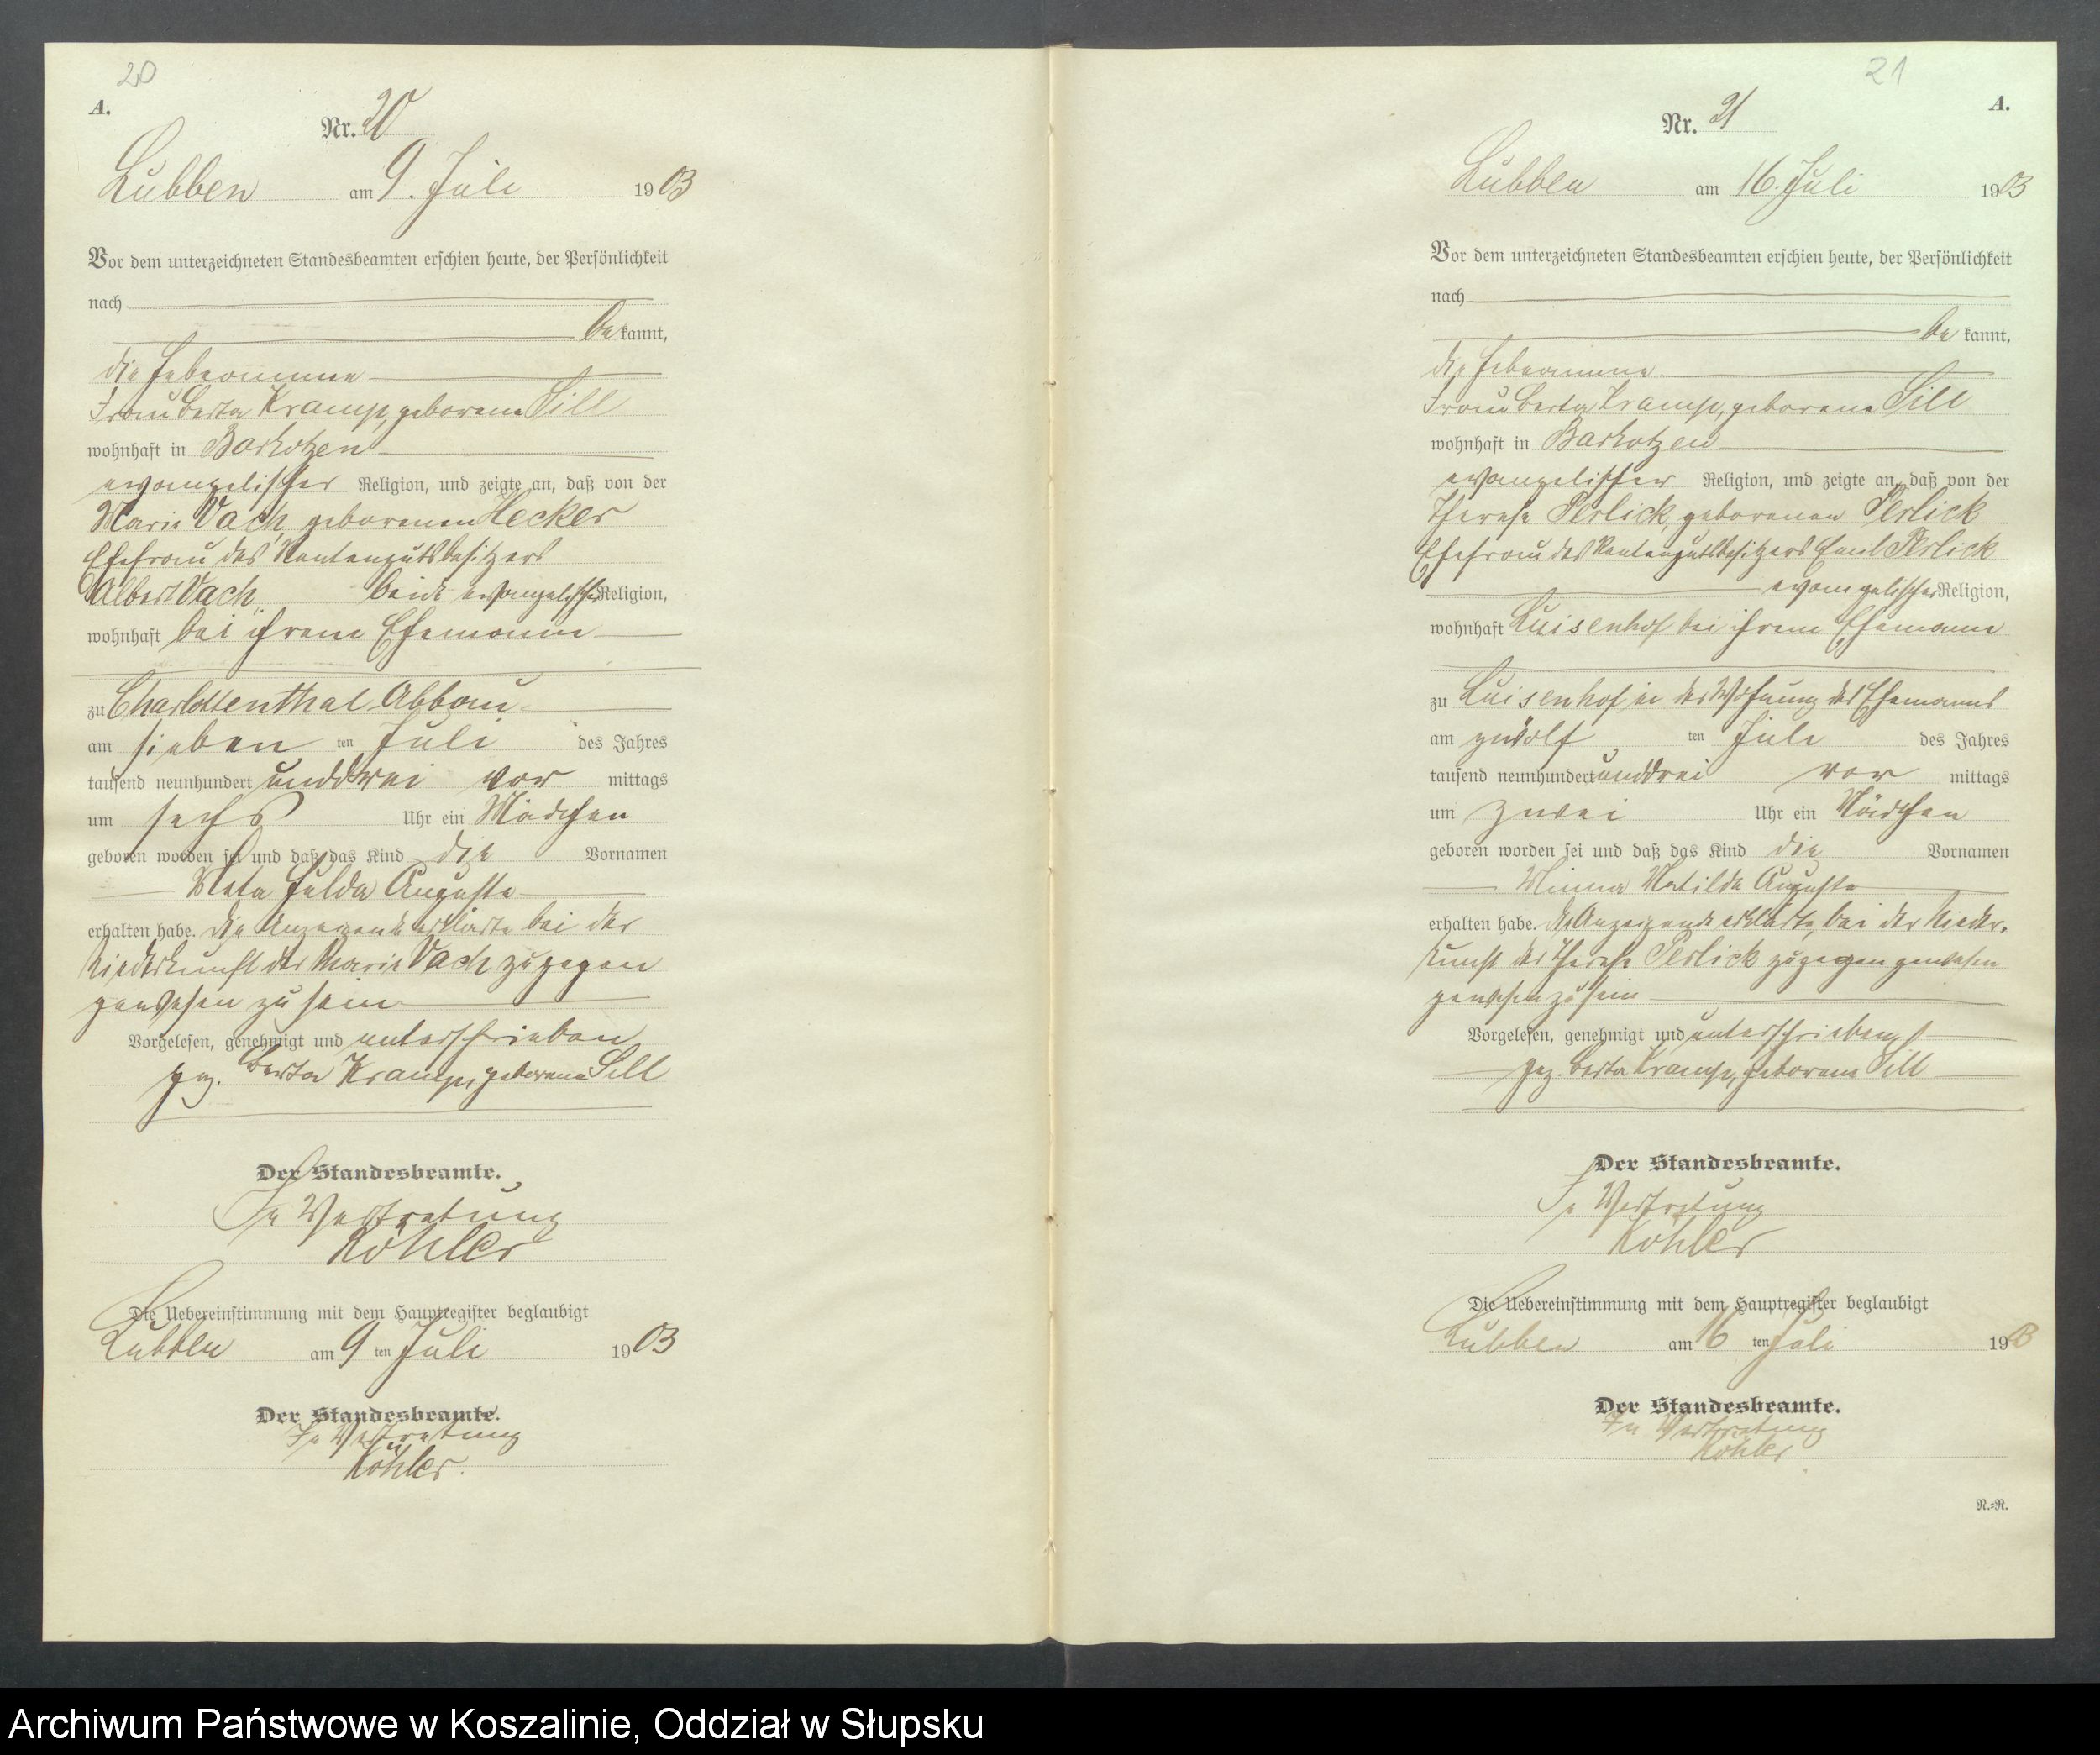 20
A.
Nr. 20
Lubben am 9. Juli 1903
Vor dem unterzeichneten Standesbeamten erschien heute, der Persönlichkeit
nach
be kannt,
die Hebeamme
Frau Berta Kramp, geborene Sill
wohnhaft in Barkotzen
evangelischer Religion, und zeigte an, daß von der
Marie Vach, geborenen Hecker
Ehefrau des Rentengutsbesitzers
Albert Vach, beide evangelischer Religion,
wohnhaft bei ihrem Ehemanne
zu Charlottenthal Abbau
am sieben ten Juli des Jahres
tausend neunhundert unddrei vor mittags
um sechs Uhr ein Mädchen
geboren worden sei und daß das Kind die Vornamen
Meta Hulda Auguste
erhalten habe. Die Anzeigende erklärte bei der
Niederkunft der Marie Vach zugegen
gewesen zu sein
Vorgelesen, genehmigt und unterschrieben
gez. Berta Kramp, geborene Sill
Der Standesbeamte.
In Vertretung
Köhler
Die Uebereinstimmung mit dem Hauptregister beglaubigt
Lubben am 9 ten Juli 1903
Der Standesbeamte.
In Vertretung
Köhler.
21
A.
Nr. 21
Lubben am 16. Juli 1903
Vor dem unterzeichneten Standesbeamten erschien heute, der Persönlichkeit
nach
be kannt,
die Hebeamme
Frau Berta Kramp, geborene Sill
wohnhaft in Barkotzen
evangelischer Religion, und zeigte an, daß von der
Therese Perlick, geborenen Perlick
Ehefrau des Rentengutsbesitzers Emil Perlick
evangelischer Religion,
wohnhaft Luisenhof bei ihrem Ehemanne
zu Luisenhof, in der Wohnung des Ehemanns
am zwölf ten Juli des Jahres
tausend neunhundert unddrei vor mittags
um zwei Uhr ein Mädchen
geboren worden sei und daß das Kind die Vornamen
Minna Matilde Auguste
erhalten habe. Die Anzeigende erklärte, bei der Nieder-
kunft der Therese Perlick zugegen gewesen
gewesen zu sein
Vorgelesen, genehmigt und unterschrieben
gez. Berta Kramp, geborene Sill
Der Standesbeamte.
In Vertretung
Köhler
Die Uebereinstimmung mit dem Hauptregister beglaubigt
Lubben am 16 ten Juli 1903
Der Standesbeamte.
In Vertretung
Köhler
N.=R.
Archiwum Państwowe w Koszalinie, Oddział w Słupsku